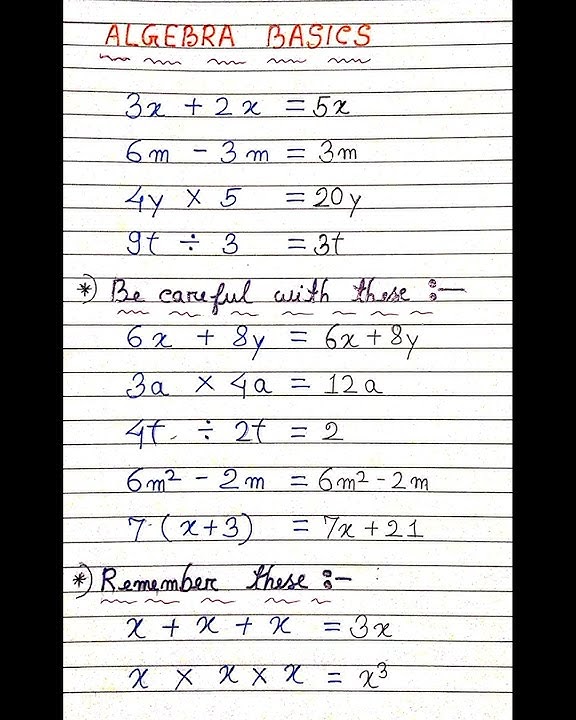 ALGEBRA BASICS
3x + 2x = 5x
6m - 3m = 3m
4y × 5 = 20y
9t ÷ 3 = 3t
*) Be careful with these :-
6x + 8y = 6x + 8y
3a × 4a = 12a
4t ÷ 2t = 2
6m² - 2m = 6m² - 2m
7 (x+3) = 7x + 21
*) Remember these :-
x + x + x = 3x
x × x × x = x³